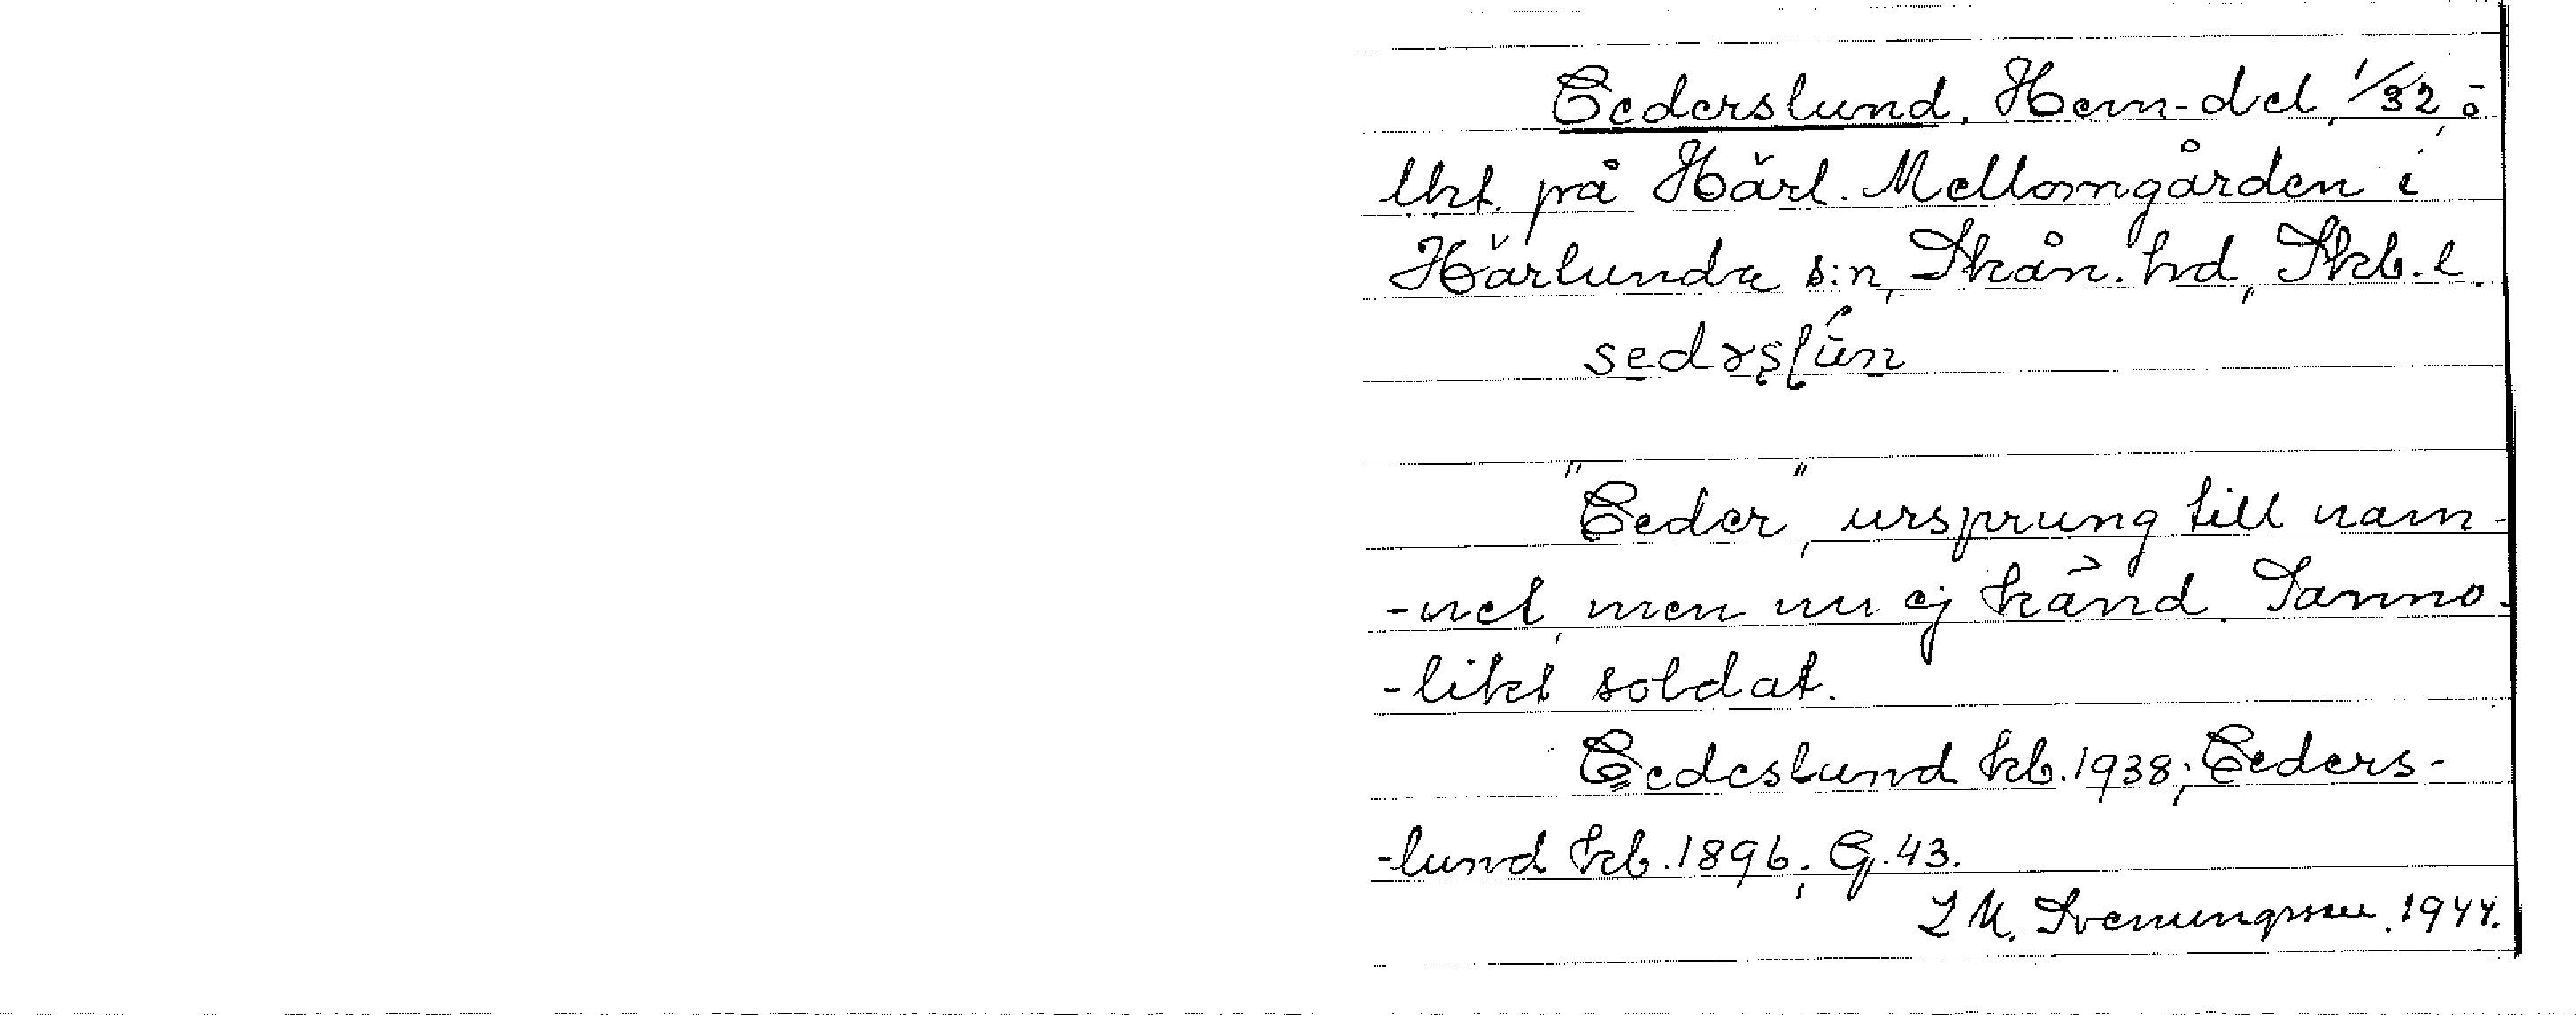 Cederslund. Hem-del, 1/32, ō
lkt. på Härl. Mellomgården i
Härlunda s:n, Skån. hd, Skb. l.
"Ceder", ursprung till nam-
-net, men nu ej känd. Sanno-
-likt soldat.
Cedeslund kb. 1938; Ceders-
-lund kb. 1896; G. 43.
Svenungsson. 1944.